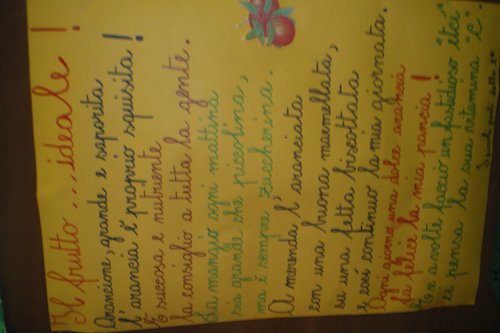 Il frutto ... ideale!
Arancione, grande e saporita
l'arancia è proprio squisita!
È succosa e nutriente
la consiglio a tutta la gente.
La mangio ogni mattina
sia grande che piccolina,
ma è sempre zuccherina.
A merenda l'aranciata
con una buona marmellata,
su una fetta biscottata
e così continuo la mia giornata.
Ogni giorno una dolce arancia
fa felice la mia pancia!
E se a volte faccio un fastidioso "etcì"
ci pensa la sua vitamina "C".